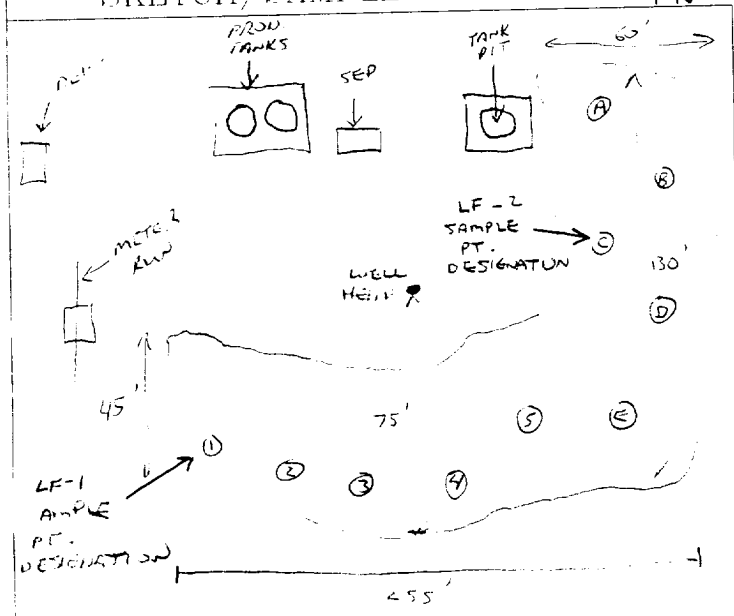 PROD
TANKS
TANK
PIT
60'
SEP
A
B
LF-2
SAMPLE
PT.
DESIGNATION
C
METER
RUN
130'
WELL
HEAD
D
45'
75'
5
E
1
2
3
4
LF-1
AMPLE
PT.
DESIGNATION